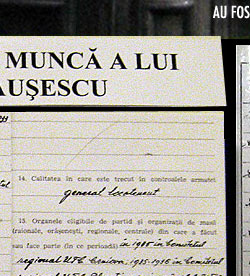 AU FOS
MUNCĂ A LUI
AUŞESCU
14. Calitatea în care este trecut în controalele armatei
general locotenent
15. Organele eligibile de partid şi organizaţii de masă
(raionale, orăşeneşti, regionale, centrale) din care a făcut
sau face parte (în ce perioadă) în 1935 în Comitetul
regional UTC Craiova; 1935-1936 în Comitetul